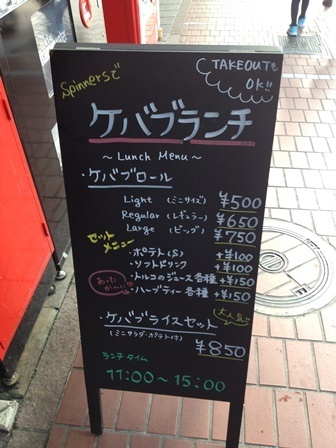 Spinnersで
TAKEOUTも
OK!!
ケバブランチ
～ Lunch Menu ～
・ケバブロール
Light (ミニサイズ) ¥500
Regular (レギュラー) ¥650
Large (ビッグ) ¥750
セット
メニュー
・ポテト(S) +¥100
・ソフトドリンク +¥100
・トルコのジュース各種 +¥150
・ハーブティー各種 +¥150
あったか〜い♡
大人気♡
・ケバブライスセット
(ミニサラダ・ポテト付) ¥850
ランチタイム
11:00～15:00